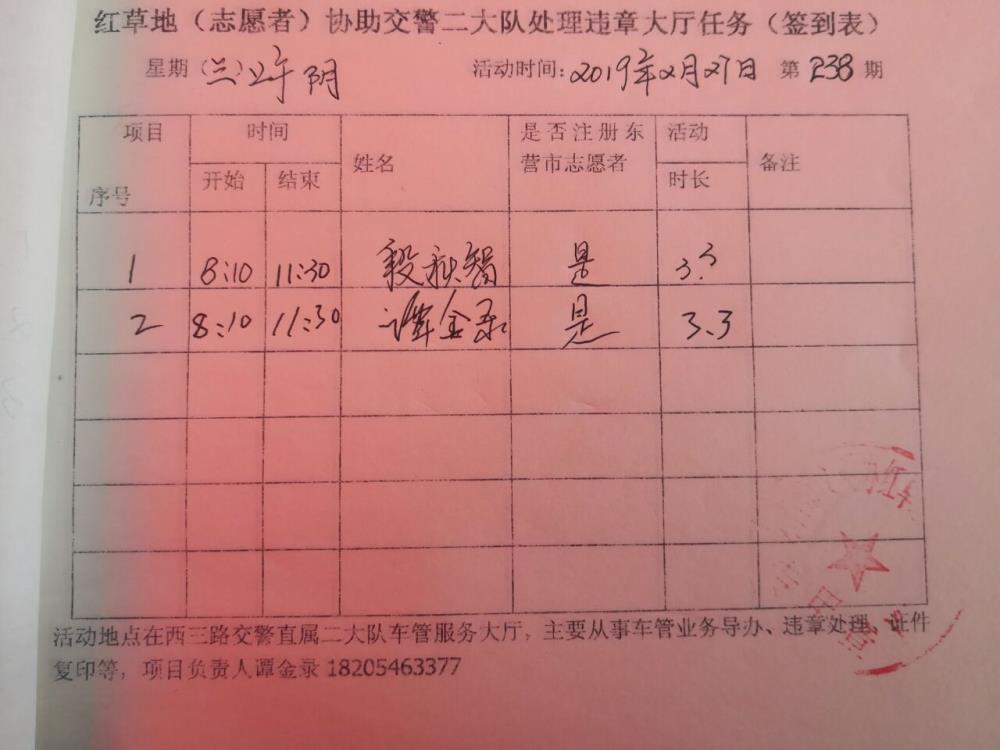 红草地（志愿者）协助交警二大队处理违章大厅任务（签到表）
星期（三）上午 阴 活动时间：2019年2月27日 第 238 期
项目 时间 姓名 是否注册东营市志愿者 活动时长 备注
序号 开始 结束
1 8:10 11:30 段秋智 是 3.3
2 8:10 11:30 谭金录 是 3.3
活动地点在西三路交警直属二大队车管服务大厅，主要从事车管业务导办、违章处理、证件
复印等，项目负责人谭金录 18205463377